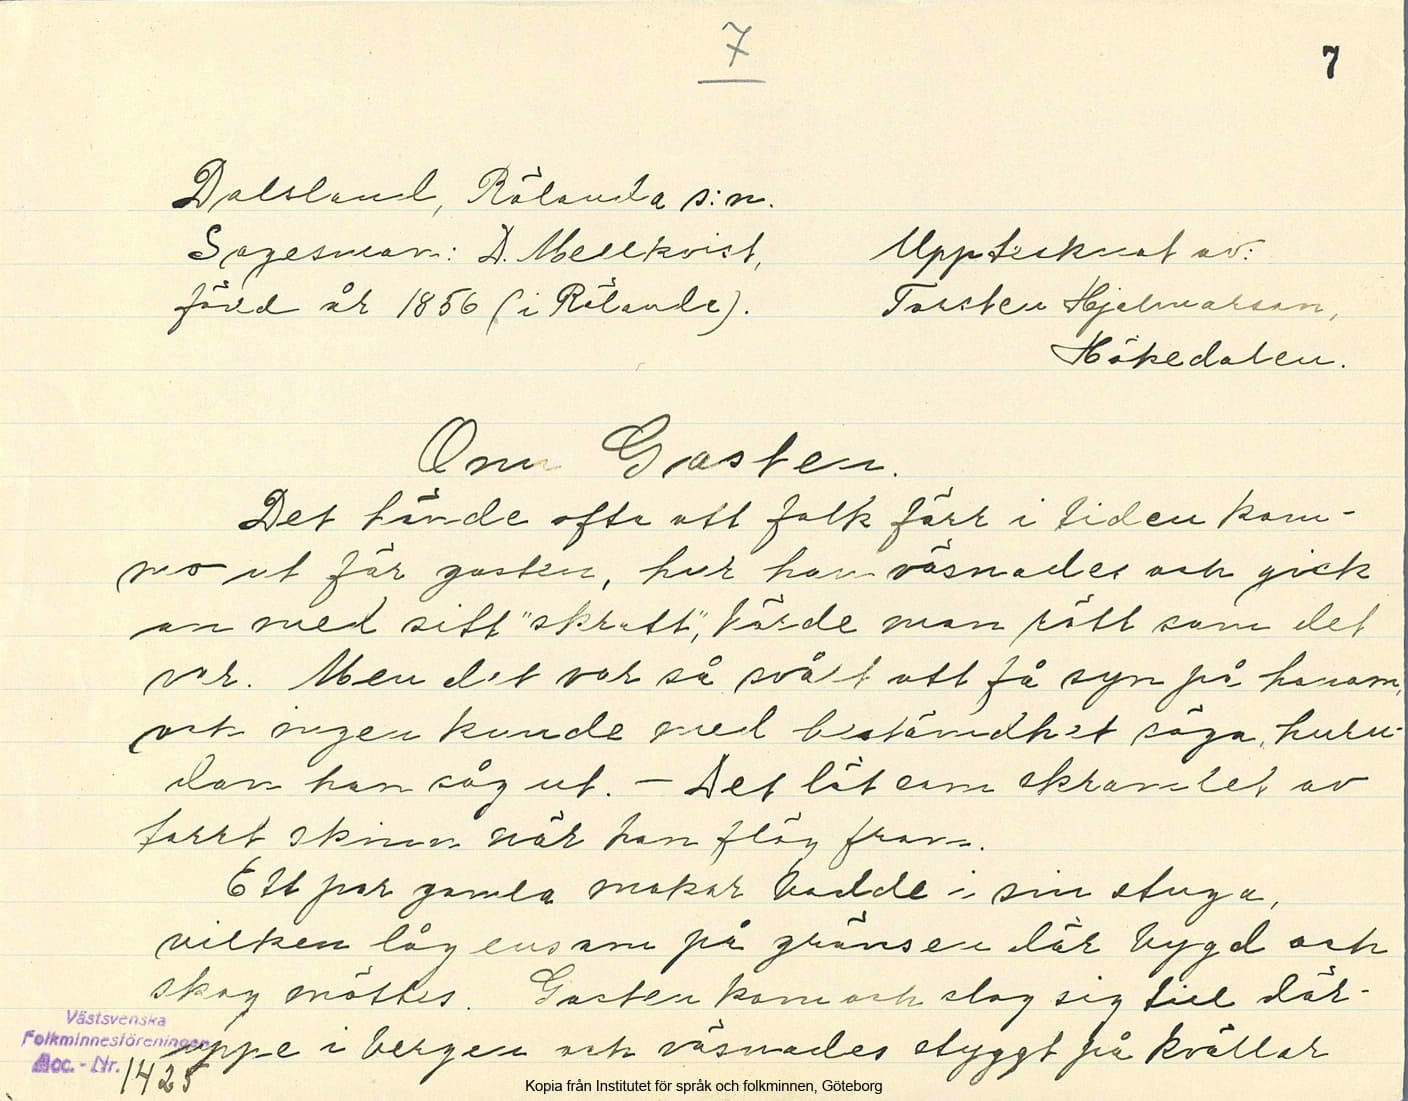 7
7
Dalsland, Rölanda s:n.
Sagesman: D. Mellkvist,
Upptecknat av:
född år 1856 (i Rölanda).
Torsten Hjelmarsson,
Hökedalen.
Om Gasten.
Det hände ofta att folk förr i tiden kom-
mo ut för gasten, hur han väsnades och gick
an med sitt "skratt", hörde man rätt som det
var. Men det var så svårt att få syn på honom,
och ingen kunde med bestämdhet säga, huru-
dan han såg ut. — Det lät som skramlet av
torrt skinn när han flög fram.
Ett par gamla makar bodde i sin stuga,
vilken låg ensam på gränsen där bygd och
skog möttes. Gasten kom och slog sig till där-
uppe i bergen och väsnades styggt på kvällar
Västsvenska
Folkminnesföreningen
Acc. - Nr. 1425
Kopia från Institutet för språk och folkminnen, Göteborg